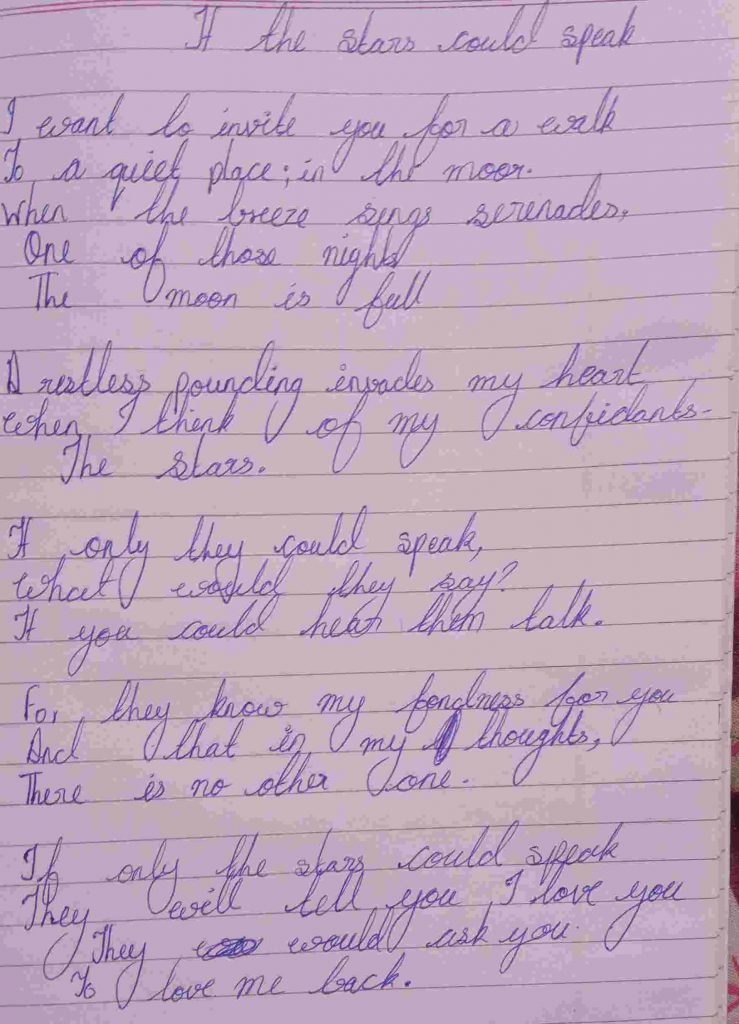 If the stars could speak
I want to invite you for a walk
To a quiet place; in the moor.
When the breeze sings serenades,
One of those nights
The moon is full
A restless pounding invades my heart
When I think of my confidants.
The stars.
If only they could speak,
What would they say?
If you could hear them talk.
For, they know my fondness for you
And that in my thoughts,
There is no other one.
If only the stars could speak
They will tell you I love you
They would ask you.
To love me back.